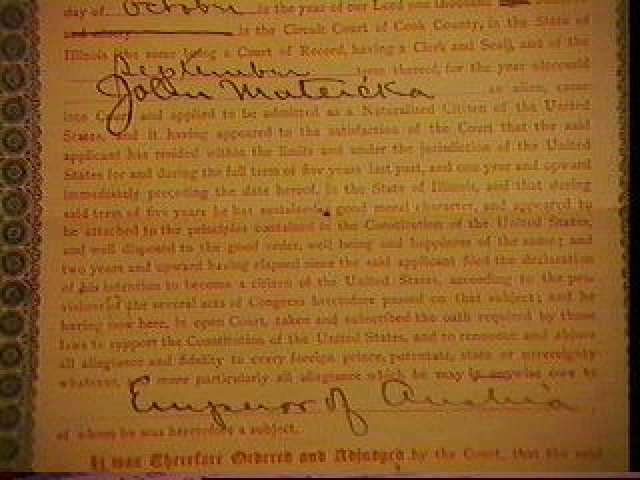 day of October in the year of our Lord one thousand
in the Circuit Court of Cook County, in the State of
Illinois (the same being a Court of Record, having a Clerk and Seal), and of the
September term thereof, for the year aforesaid
John Mateicka an alien, came
into Court and applied to be admitted as a Naturalized Citizen of the United
States, and it having appeared to the satisfaction of the Court that the said
applicant has resided within the limits and under the jurisdiction of the United
States for and during the full term of five years last past, and one year and upward
immediately preceding the date hereof, in the State of Illinois, and that during
said term of five years he has sustained a good moral character, and appeared to
be attached to the principles contained in the Constitution of the United States,
and well disposed to the good order, well being and happiness of the same; and
two years and upward having elapsed since the said applicant filed the declaration
of his intention to become a citizen of the United States, according to the pro-
visions of the several acts of Congress heretofore passed on that subject; and he
having now here, in open Court, taken and subscribed the oath required by those
laws to support the Constitution of the United States, and to renounce and abjure
all allegiance and fidelity to every foreign prince, potentate, state or sovereignty
whatever, more particularly all allegiance which he may in anywise owe to
Emperor of Austria
of whom he was heretofore a subject.
It was Therefore Ordered and Adjudged by the Court, that the said